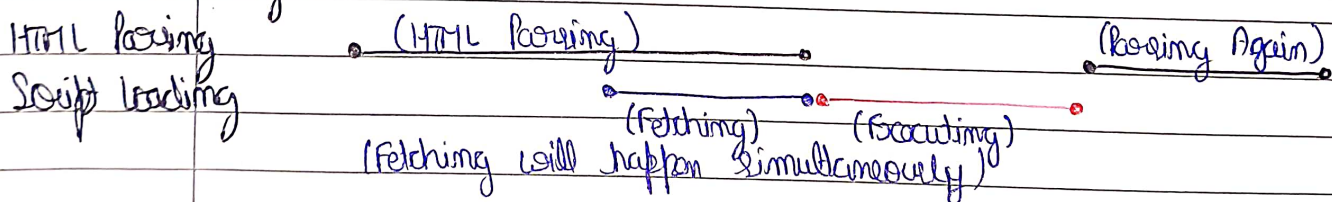 HTML Parsing (HTML Parsing) (Parsing Again)
Script loading
(Fetching) (Executing)
(Fetching will happen simultaneously)